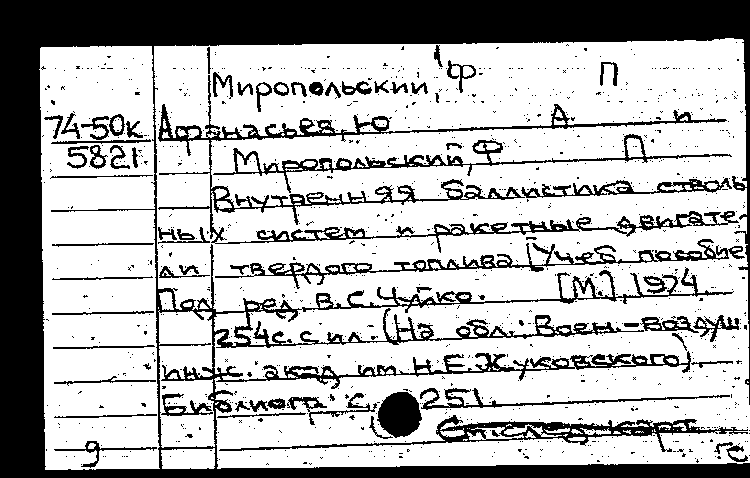 Миропольский, Ф П
74-50к Афанасьев, Ю А и
5821. Миропольский, Ф П
Внутренняя баллистика стволь-
ных систем и ракетные двигате-
ли твердого топлива [Учеб. пособие
Под ред. В.С.Чуйко. [М.], 1974.
254с. с ил. (На обл.: Воен.-воздуш.
инж. акад им. Н.Е.Жуковского).
Библиогр: с. 251.
См.след карт
9 гс